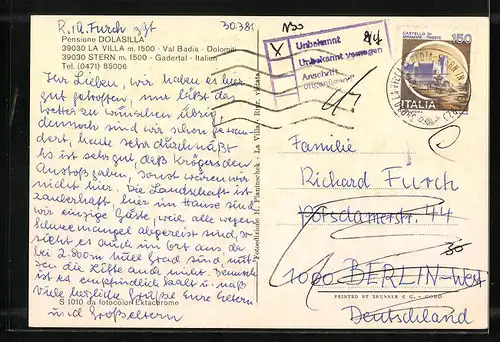 R. u. A. Furch zzt
30.3.81
Pensione DOLASILLA
39030 LA VILLA m. 1500 · Val Badia · Dolomiti
39030 STERN m. 1500 · Gadertal · Italien
Tel. (0471) 85006
Ihr Lieben, wir haben es hier
gut getroffen, nur läßt das
Wetter zu wünschen übrig,
dennoch sind wir schon gewan-
dert, heute sehr durchnäßt
Es ist sehr gut, daß
sonst wären wir
nicht hier. Die Landschaft ist
zauberhaft, hier im Hause sind
wir einzige Gäste, wie alle wegen
Schneemangel abgereist sind, so
sieht es auch im Ort aus da
bei 2.800m null Grad sind
die Lifte auch nicht. Dennoch
ist es empfindlich kalt u. naß
Viele herzliche Grüße Eure Eltern
und Großeltern
S 1010 da fotocolor Ektachrome
Fotoedizione H. Planinschek - La Villa - Ripr. vietata
Unbekannt
Unbekannt verzogen
Anschrift
CASTELLO DI MIRAMARE · TRIESTE
150
ITALIA
Familie
Richard Furch
Potsdamerstr. 44
1000 BERLIN-West
Deutschland
PRINTED BY BRUNNER & C. - COMO